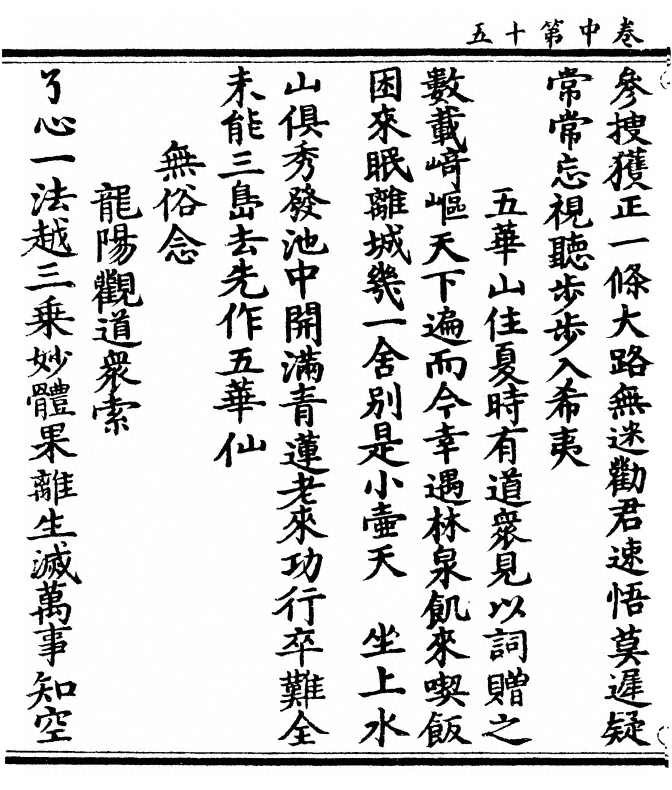 卷中第十五
參搜獲正一條大路無迷勸君速悟莫遲疑
常常忘視聽步步入希夷
五華山住夏時有道衆見以詞贈之
數載﨑嶇天下遍而今幸遇林泉飢來喫飯
困來眠離城幾一舍別是小壷天　坐上水
山俱秀發池中開滿青蓮老來功行卒難全
未能三島去先作五華仙
無俗念
龍陽觀道衆索
了心一法越三乗妙體果離生滅萬事知空